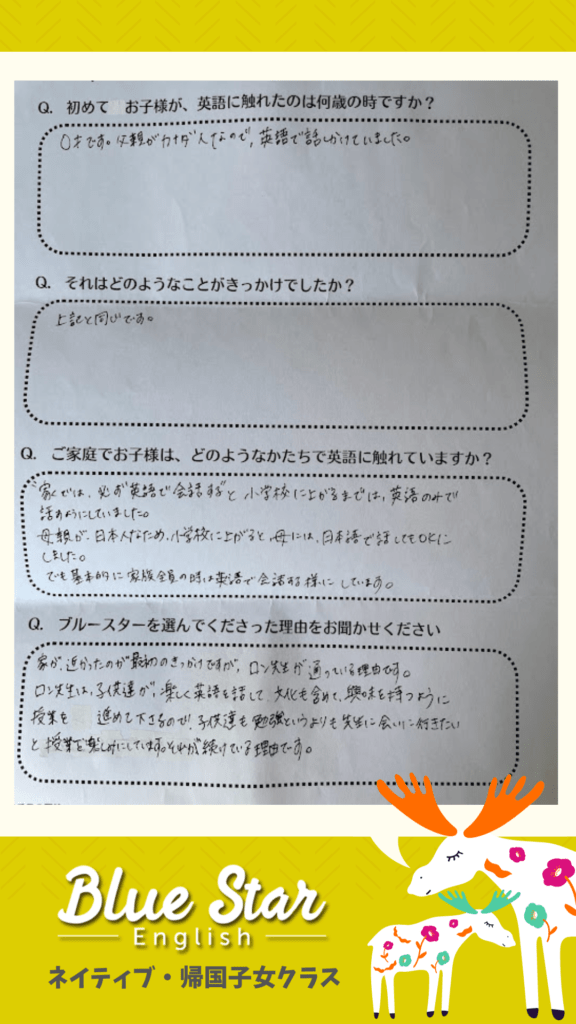 Q. 初めて お子様が、英語に触れたのは何歳の時ですか？
0才です。父親がカナダ人なので、英語で話しかけていました。
Q. それはどのようなことがきっかけでしたか？
上記と同じです。
Q. ご家庭でお子様は、どのようなかたちで英語に触れていますか？
"家では、必ず英語で会話する"と小学校に上がるまでは、英語のみで
話すようにしていました。
母親が、日本人なため、小学校に上がると、母には、日本語で話してもOKに
しました。
でも基本的に家族全員の時は英語で会話する様にしています。
Q. ブルースターを選んでくださった理由をお聞かせください
家が、近かったのが最初のきっかけですが、ロン先生が通っている理由です。
ロン先生は、子供達が、楽しく英語を話して、文化も含めて、興味を持つように
授業を 進めて下さるので、子供達も勉強というよりも先生に会いに行きたい
と授業を楽しみにしています。それが続けている理由です。
Blue Star
English
ネイティブ・帰国子女クラス